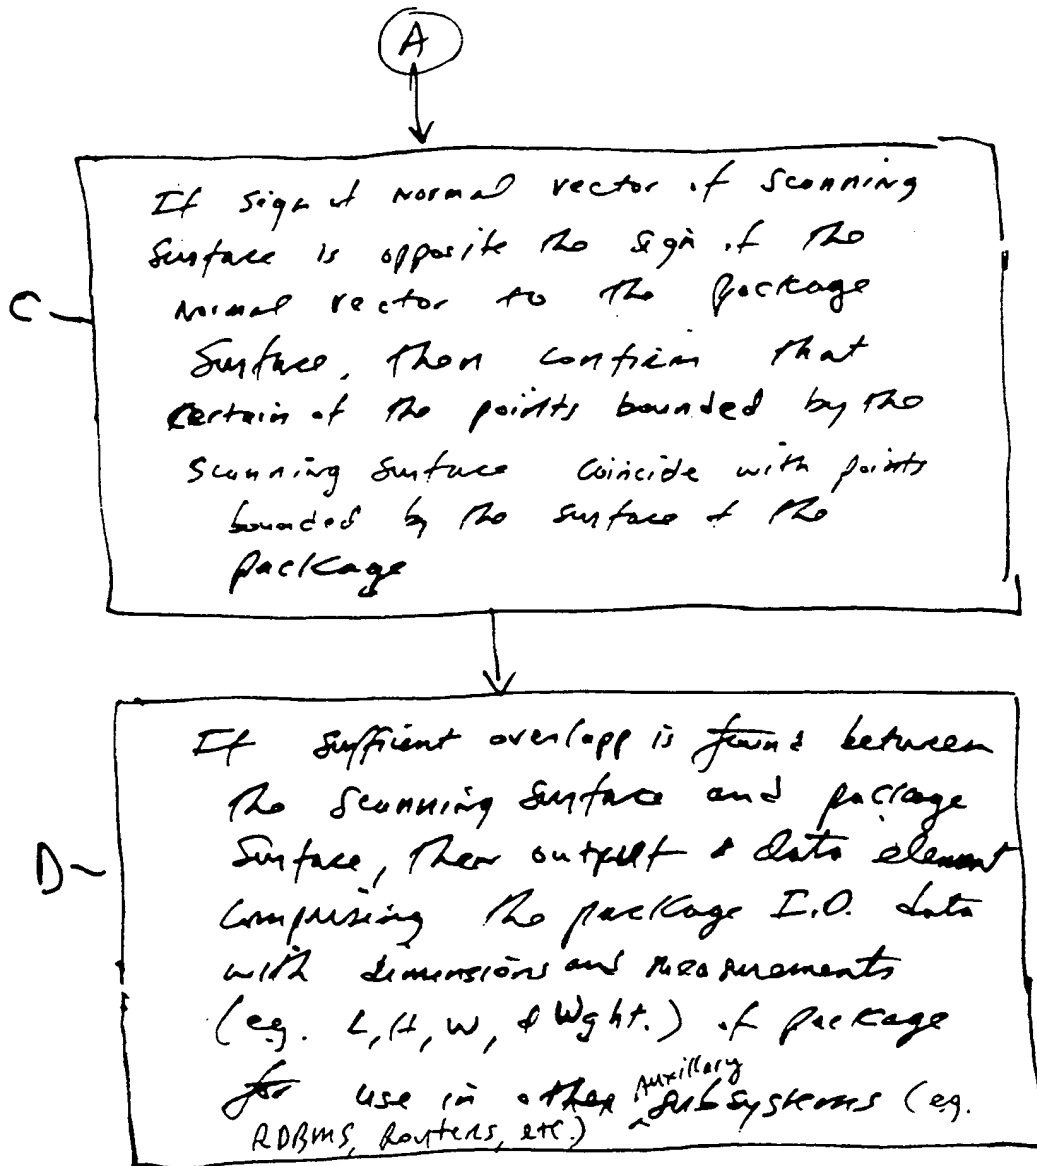 A
If sign of normal vector of scanning
surface is opposite the sign of the
normal vector to the package
C
surface, then confirm that
certain of the points bounded by the
scanning surface coincide with points
bounded by the surface of the
package
If sufficient overlapp is found between
the scanning surface and package
D
surface, then output a data element
comprising the package I.D. data
with dimensions and measurements
(e.g. L, H, W, & Wght.) of package
for use in other Auxillary subsystems (e.g.
RDBMS, Routers, etc.)